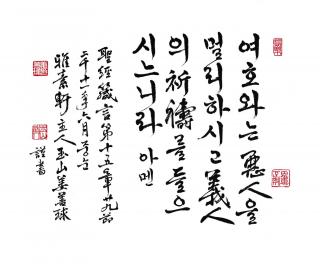 여호와는 惡人을
멀리하시고 義人
의 祈禱를 들으
시느니라 아멘
聖經箴言第十五章廿九節
二千十一年六月
雅素軒主人玉山姜善球
謹書